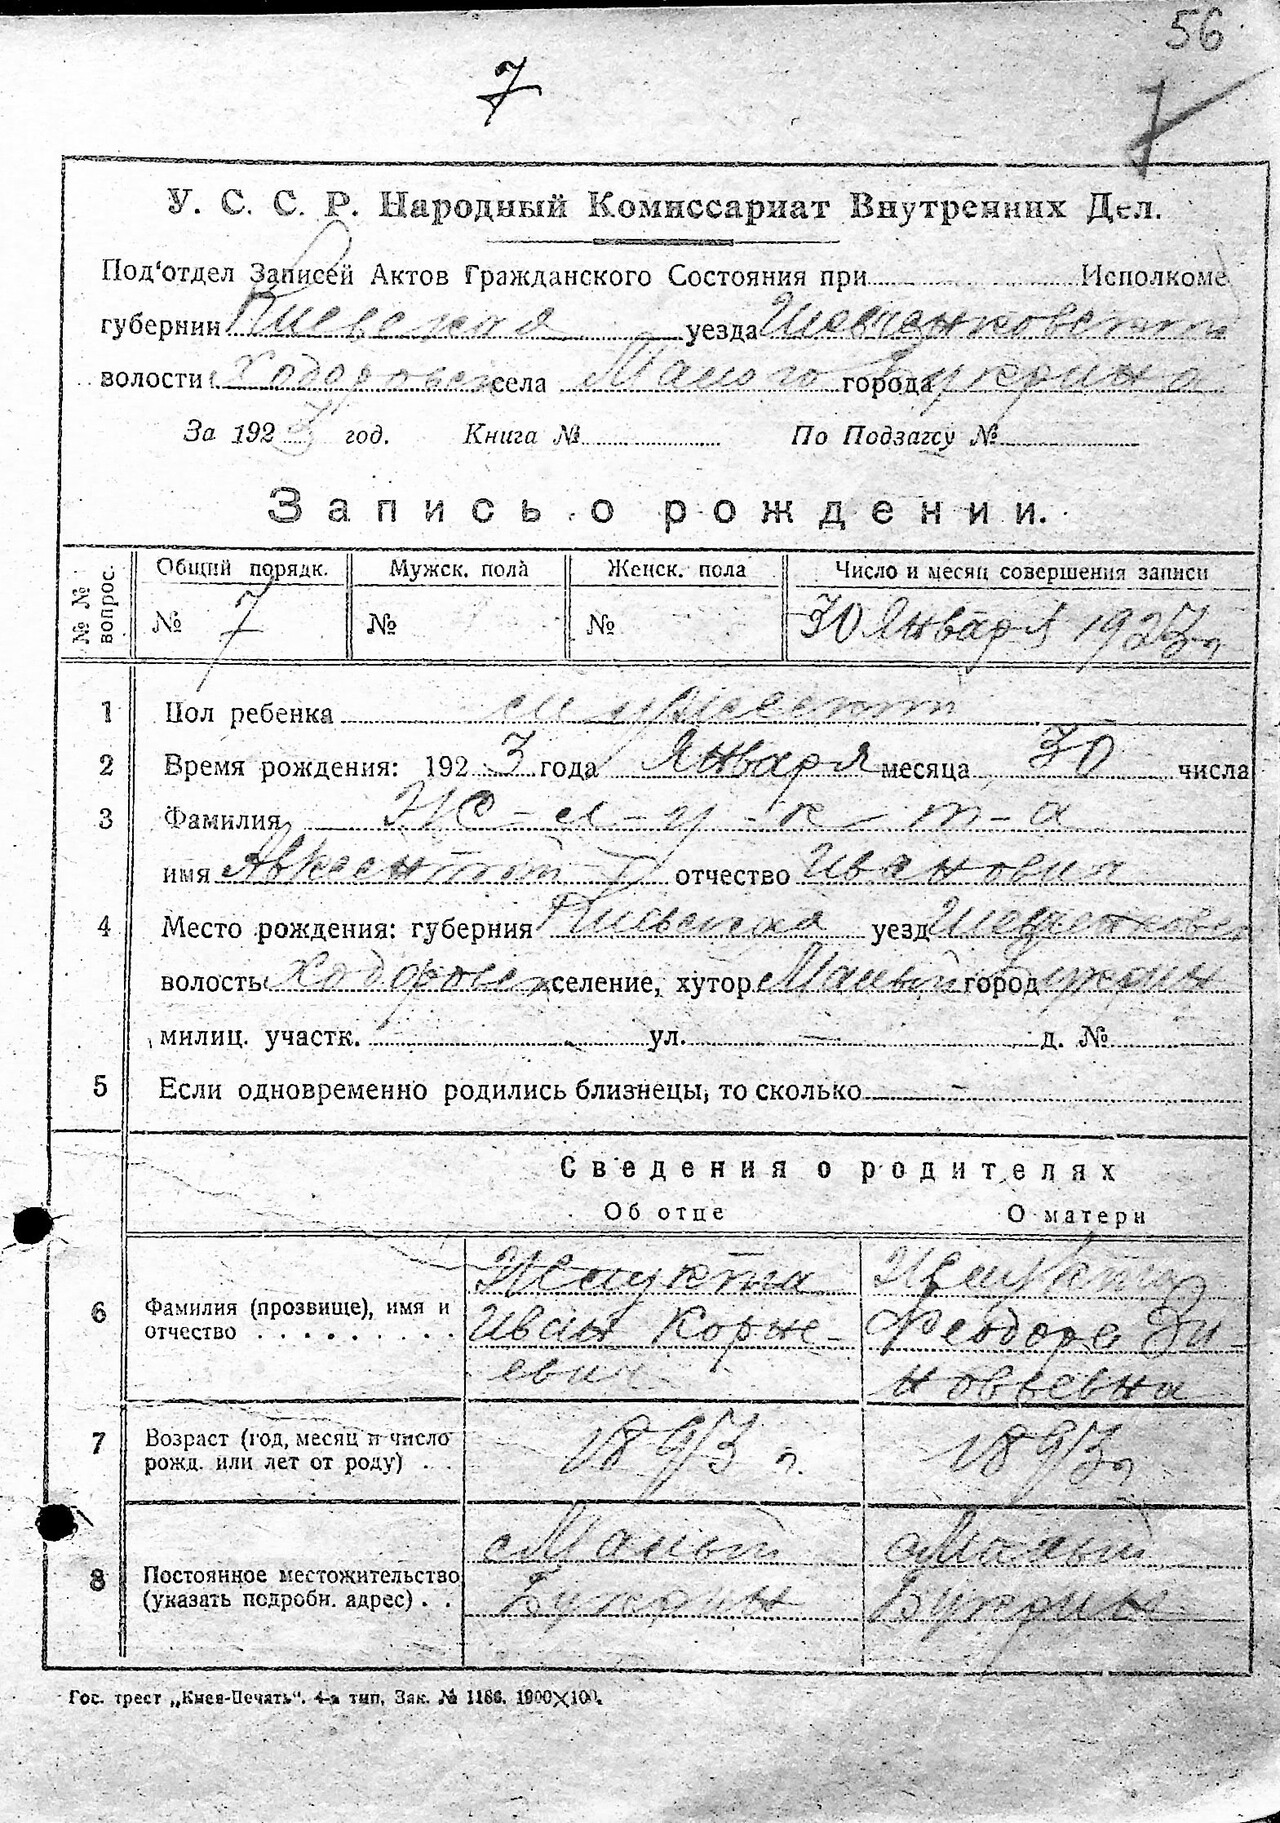 56
7
У. С. С. Р. Народный Комиссариат Внутренних Дел.
Под'отдел Записей Актов Гражданского Состояния при Исполкоме
губернии Киевская уезда Шевченковский
волости Ходоровск села Малого города Букрина
За 1923 год. Книга № По Подзагсу №
Запись о рождении.
№ № вопрос. Общий порядк. Мужск. пола Женск. пола Число и месяц совершения записи
№ 7 № № 30 Января 1923 г.
1 Пол ребенка мужеский
2 Время рождения: 1923 года Января месяца 30 числа
3 Фамилия Ж-л-у-к-т-а
имя Авксентий отчество Иванович
4 Место рождения: губерния Киевская уезд Шевченковск
волость Ходоровск селение, хутор Малый город Букрин
милиц. участк. ул. — д. №
5 Если одновременно родились близнецы, то сколько -
Сведения о родителях
Об отце О матери
6 Фамилия (прозвище), имя и отчество
Жлукта
Иван Корне-
евич
Жлукта
Феодора Зи-
новьевна
7 Возраст (год, месяц и число рожд. или лет от роду)
1893 г. 1893 г.
8 Постоянное местожительство (указать подробн. адрес)
с Малый
Букрин
с Малый
Букрин
Гос. трест „Киев-Печать“. 4-я тип. Зак. № 1166. 1900×100.